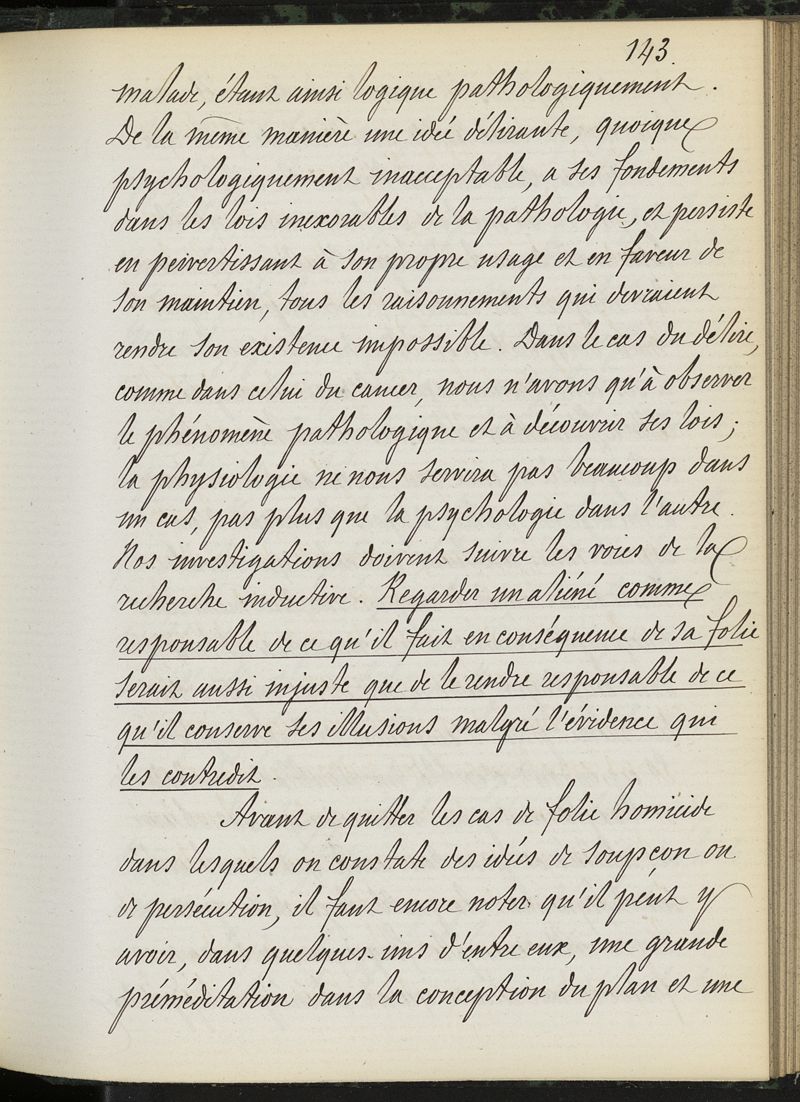 143
malade, étant ainsi logique pathologiquement.
De la même manière une idée délirante, quoique
psychologiquement inacceptable, a ses fondements
dans les lois inexorables de la pathologie, et persiste
en pervertissant à son propre usage et en faveur de
son maintien, tous les raisonnements qui devraient
rendre son existence impossible. Dans le cas du délire,
comme dans celui du cancer, nous n'avons qu'à observer
le phénomène pathologique et à découvrir ses lois;
la physiologie ne nous servira pas beaucoup dans
un cas, pas plus que la psychologie dans l'autre.
Nos investigations doivent suivre les voies de la
recherche inductive. Regarder un aliéné comme
responsable de ce qu'il fait en conséquence de sa folie
serait aussi injuste que de le rendre responsable de ce
qu'il conserve ses illusions malgré l'évidence qui
les contredit.
Avant de quitter les cas de folie homicide
dans lesquels on constate des idées de soupçon ou
de persécution, il faut encore noter qu'il peut y
avoir, dans quelques-uns d'entre eux, une grande
préméditation dans la conception du plan et une